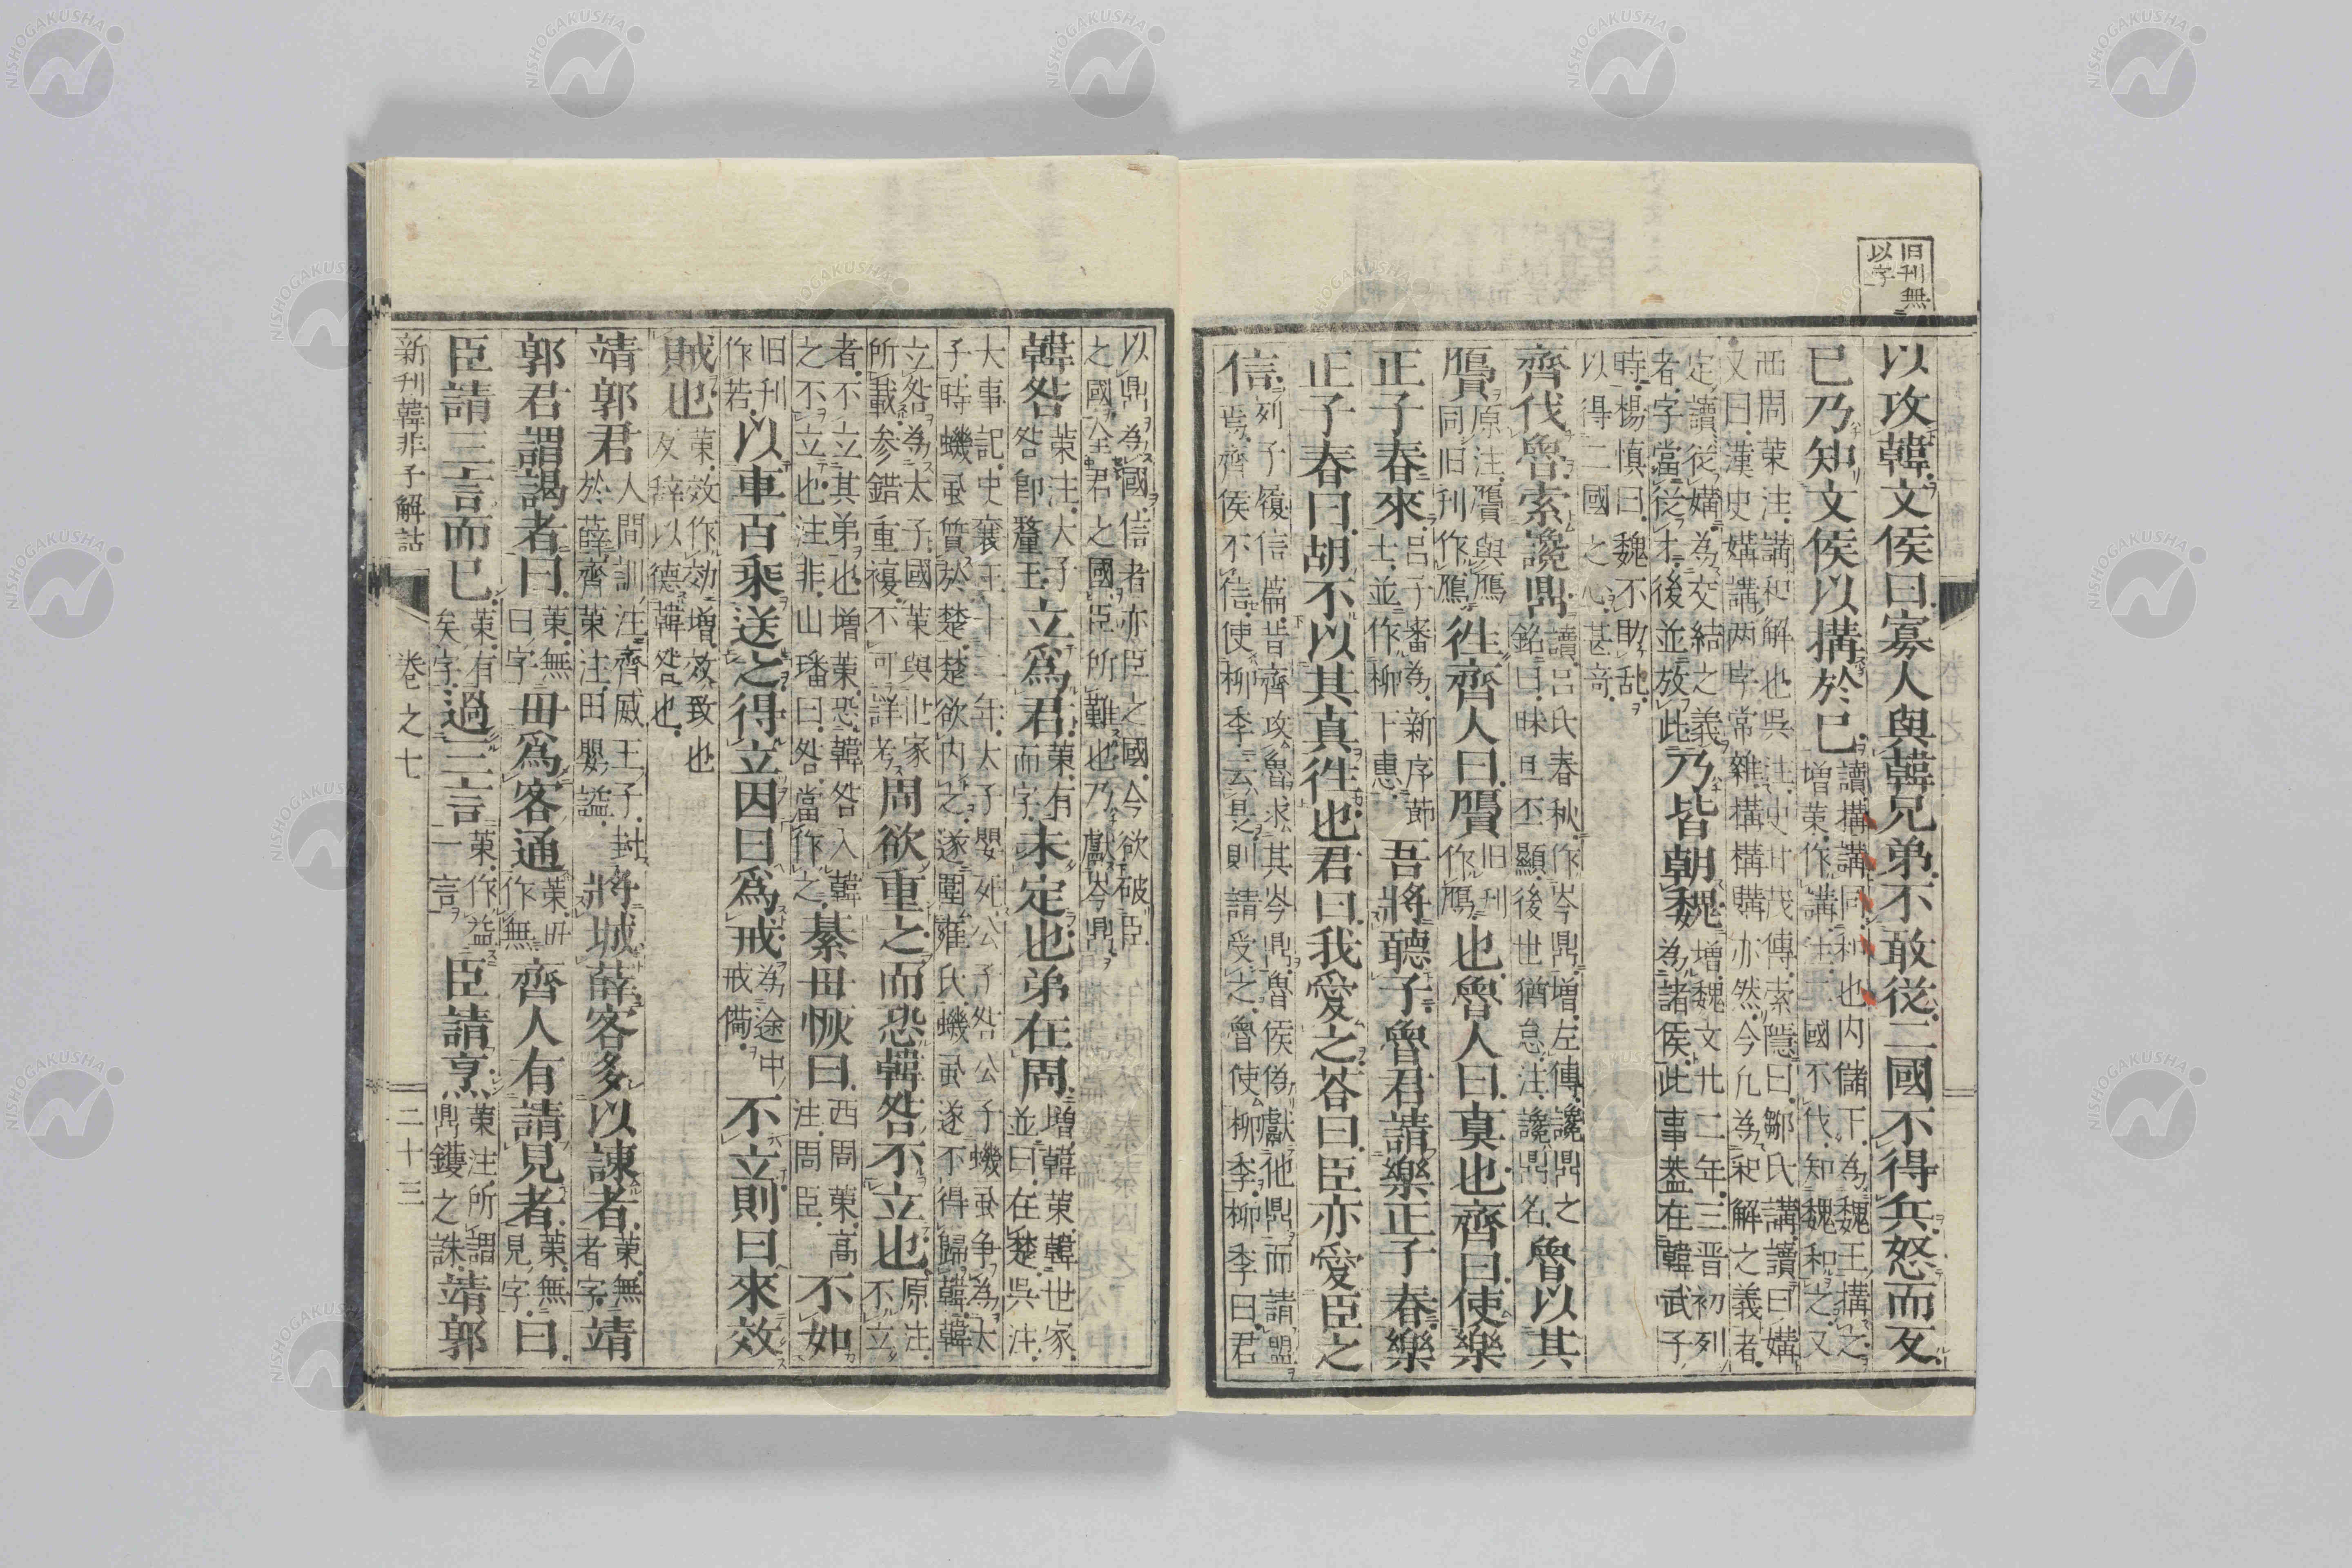 旧刊無
以字
以攻韓文侯曰寡人與韓兄弟不敢從二國不得兵怒而反
已乃知文侯以搆於己讀搆講同和也内儲下為魏王搆之増䇿作講注二國不伐知魏和之又
西周䇿注講和解也呉注史甘茂傳索隱曰鄒氏講讀曰媾
又曰漢史媾講两字常雜搆構購亦然今凢為和解之義者
定讀從媾為交結之義者字當從才後並放此乃皆朝魏増魏文廿二年三晋初列為諸侯此事盖在韓武子
時楊慎曰魏不助乱以得二國之心甚竒
齊伐魯索讒鼎讀吕氏春秋作岑鼎増左傳讒鼎之銘曰昧旦丕顯後世猶怠注讒鼎名魯以其
贋原注贋與鴈同旧刊作鴈徃齊人曰贋旧刊作鴈也魯人曰真也齊曰使樂
正子春來吕子審為新序節士並作柳下惠吾將聽子魯君請樂正子春樂
正子春曰胡不以其真徃也君曰我愛之荅曰臣亦愛臣之
信列子履信篇昔齊攻魯求其岑鼎魯侯偽獻他鼎而請盟焉齊侯不信使柳季云是則請受之魯使柳季柳季曰君
以鼎為國信者亦臣之國今欲破臣之國全君之國臣所難也乃獻岑鼎
韓咎䇿注大子咎即釐王立爲君䇿有而字未定也弟在周増韓䇿韓世家並曰在楚呉注
大事記史襄王十二年太子嬰死公子咎公子蟣虱争為太
子時蟣虱質於楚楚欲内之遂圍雍氏蟣虱遂不得歸韓韓
立咎為太子國䇿與世家所載参錯重複不可詳考周欲重之而恐韓咎不立也原注不立
者不立其弟也増䇿恐韓咎入韓之不立也注非山璠曰咎當作之綦毋恢曰西周䇿高注周臣不如
旧刊作若以車百乘送之得立因曰爲戒為途中戒備不立則曰來效
賊也䇿效作効増效致也反辞以德韓咎也
靖郭君人間訓注齊威王子封於薛齊䇿注田嬰謚將城薛客多以諫者䇿無者字靖
郭君謂謁者曰䇿無曰字毋爲客通䇿毋作無齊人有請見者䇿無見字曰
臣請三言而已䇿有矣字過三言䇿作益一言臣請烹䇿注所謂鼎鑊之誅靖郭
新刊韓非子解詁　卷之七　二十三